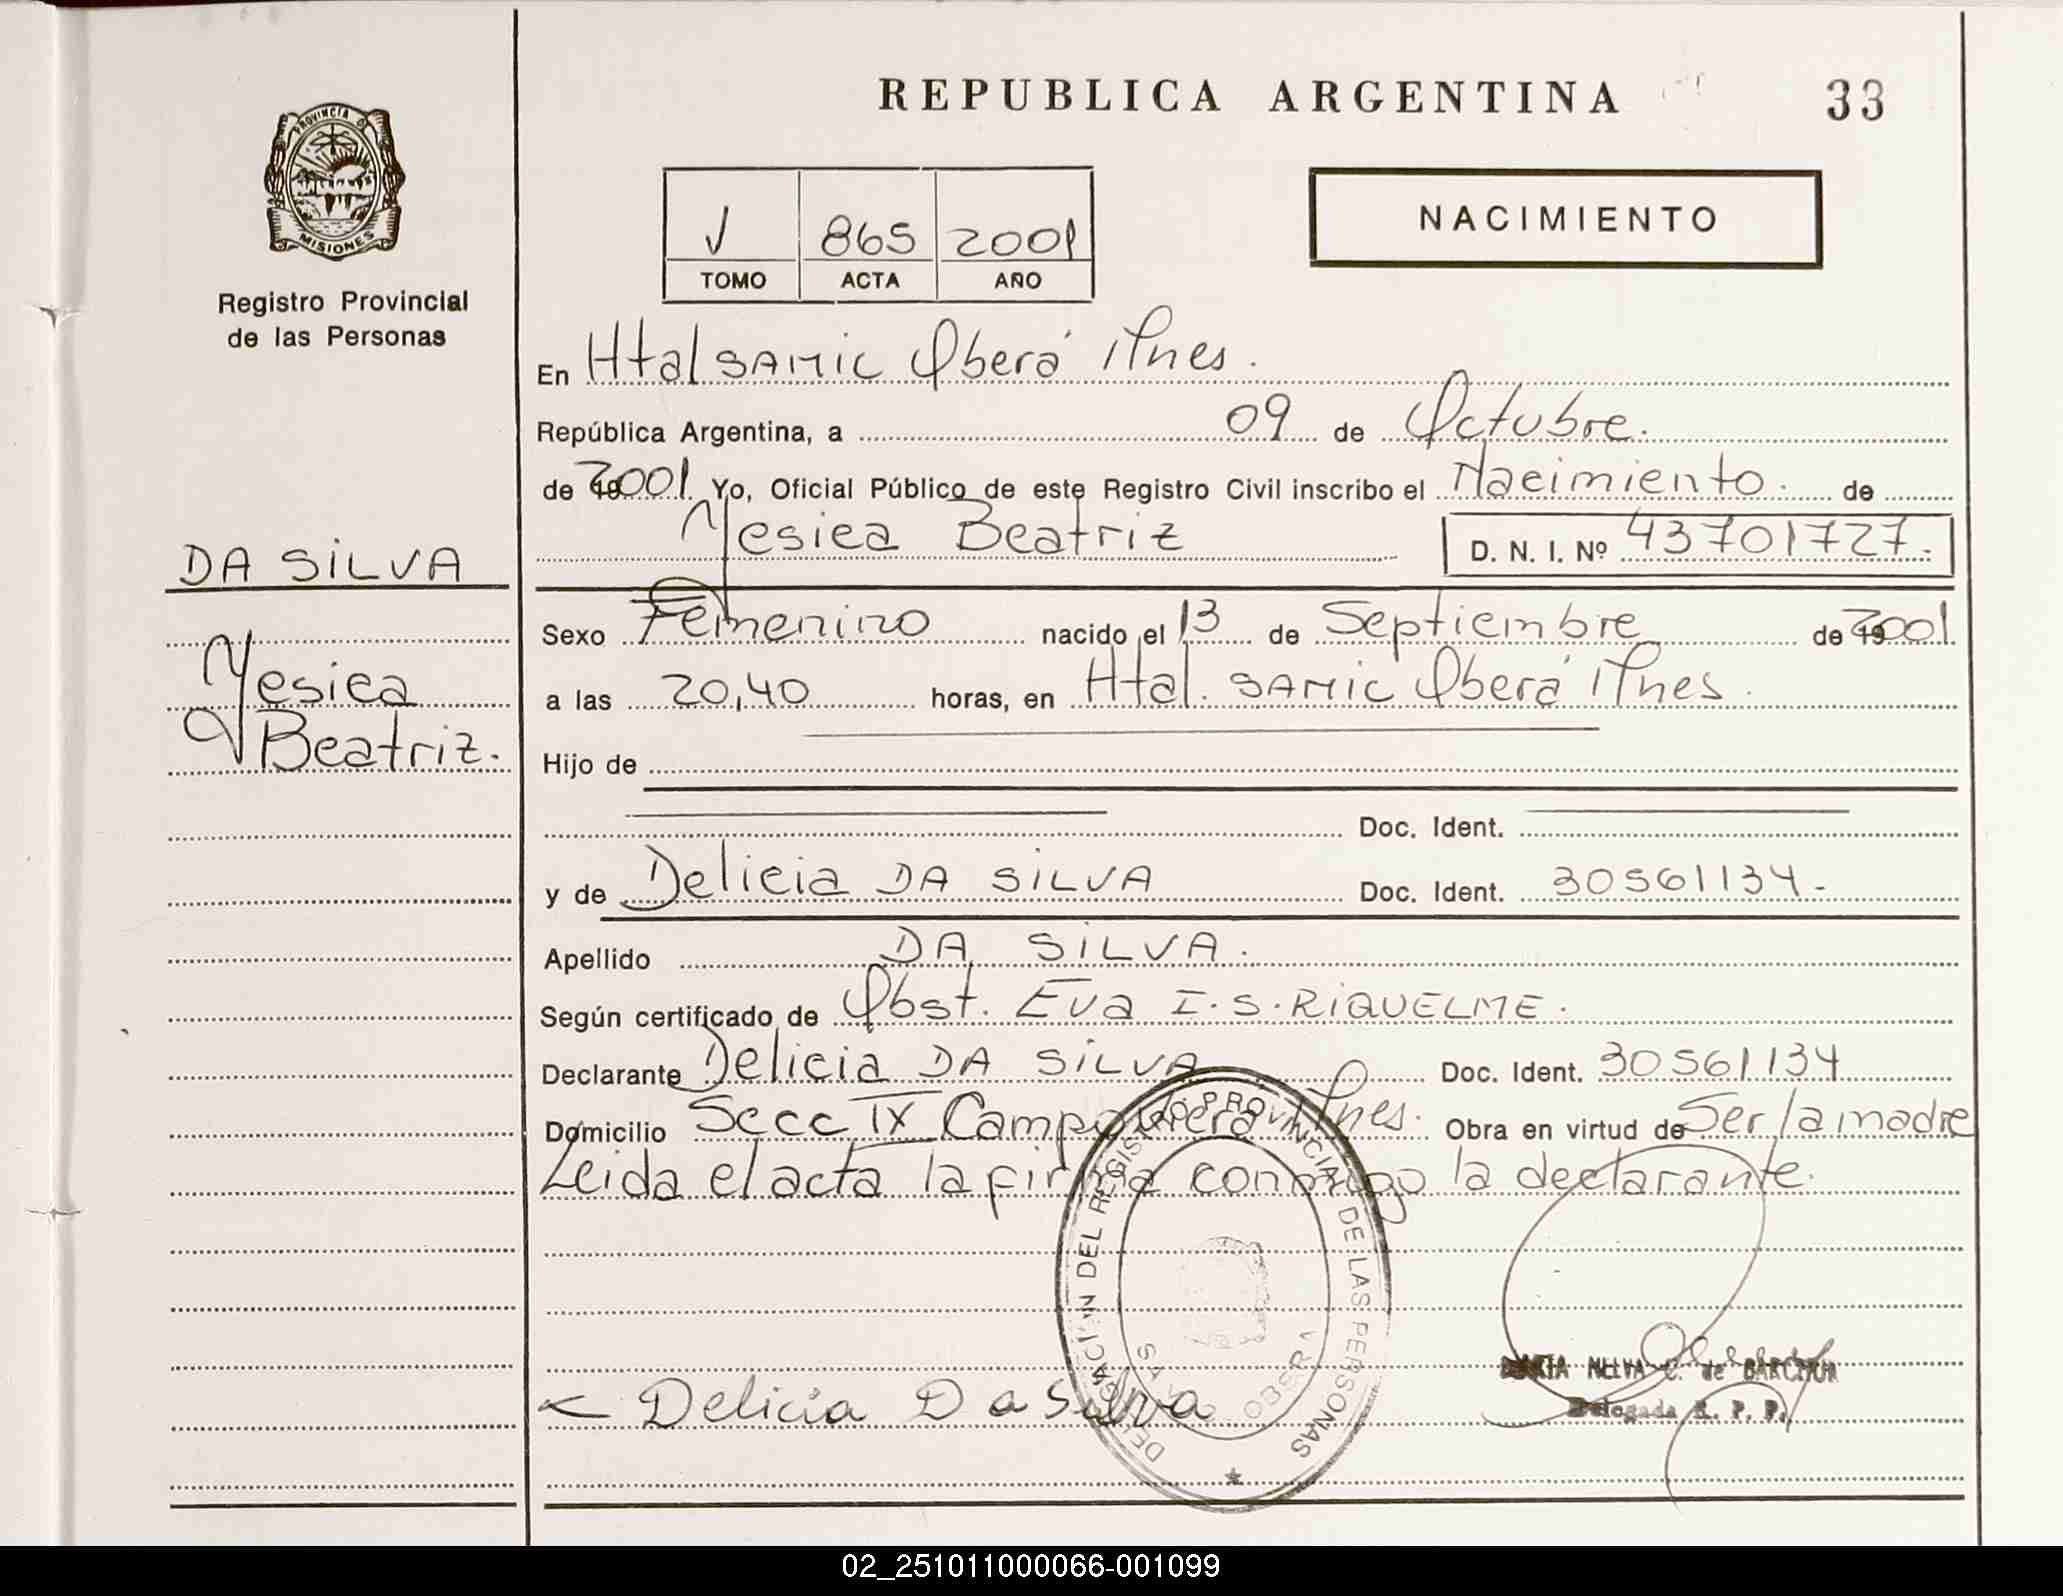 REPUBLICA ARGENTINA 33
PROVINCIA D
MISIONES
Registro Provincial
de las Personas
NACIMIENTO
V 865 2001
TOMO ACTA AÑO
En Htal SAMIC Oberá Mnes.
República Argentina, a 09 de Octubre.
de 2001 Yo, Oficial Público de este Registro Civil inscribo el Nacimiento. de
Yesica Beatriz D. N. I. Nº 43701727.
DA SILVA
Yesica
Beatriz.
Sexo Femenino nacido el 13 de Septiembre de 2001
a las 20,40 horas, en Htal. SAMIC Oberá Mnes.
Hijo de
Doc. Ident.
y de Delicia DA SILVA Doc. Ident. 30561134.-
Apellido DA SILVA.
Según certificado de Obst. Eva I. S. RIQUELME.
Declarante Delicia DA SILVA Doc. Ident. 30561134
Domicilio Secc IX Campo Viera Mnes. Obra en virtud de Ser la madre
Leida el acta la firma conmigo la declarante.
DELEGACION DEL REGISTRO PROVINCIAL DE LAS PERSONAS
Delicia Da Silva
Delegada R. P. P.
02_251011000066-001099